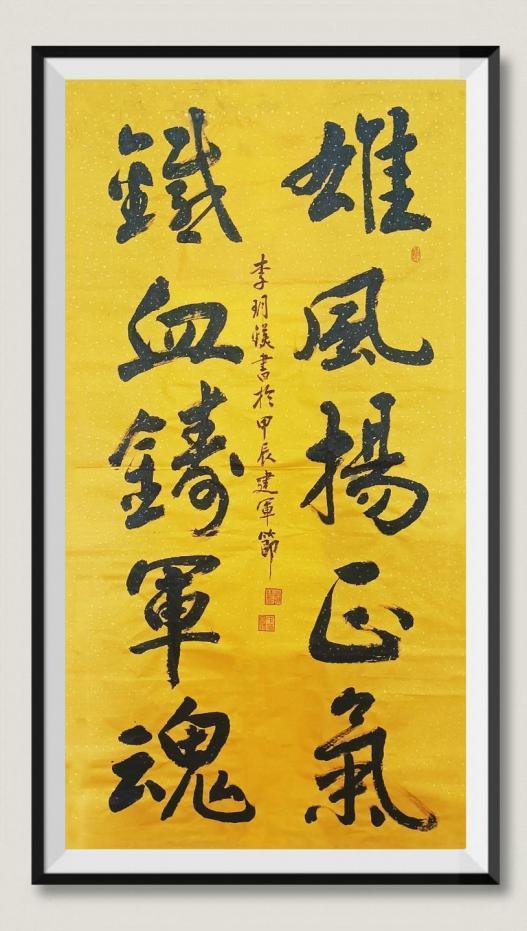 雄風揚正氣
鐵血鑄軍魂
李玥漢書於甲辰建軍節